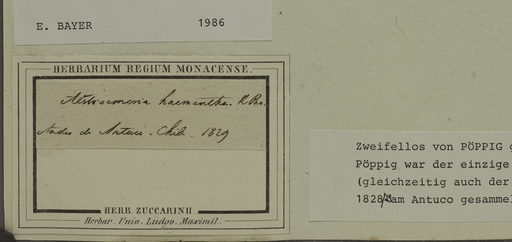 E. BAYER 1986
HERBARIUM REGIUM MONACENSE.
Alstroemeria haemantha. R Pav.
Andes de Antuco. Chil. 1829
HERB. ZUCCARINII.
Herbar. Univ. Ludov. Maximil.
Zweifellos von PÖPPIG g
Pöppig war der einzige
(gleichzeitig auch der
am Antuco gesammel